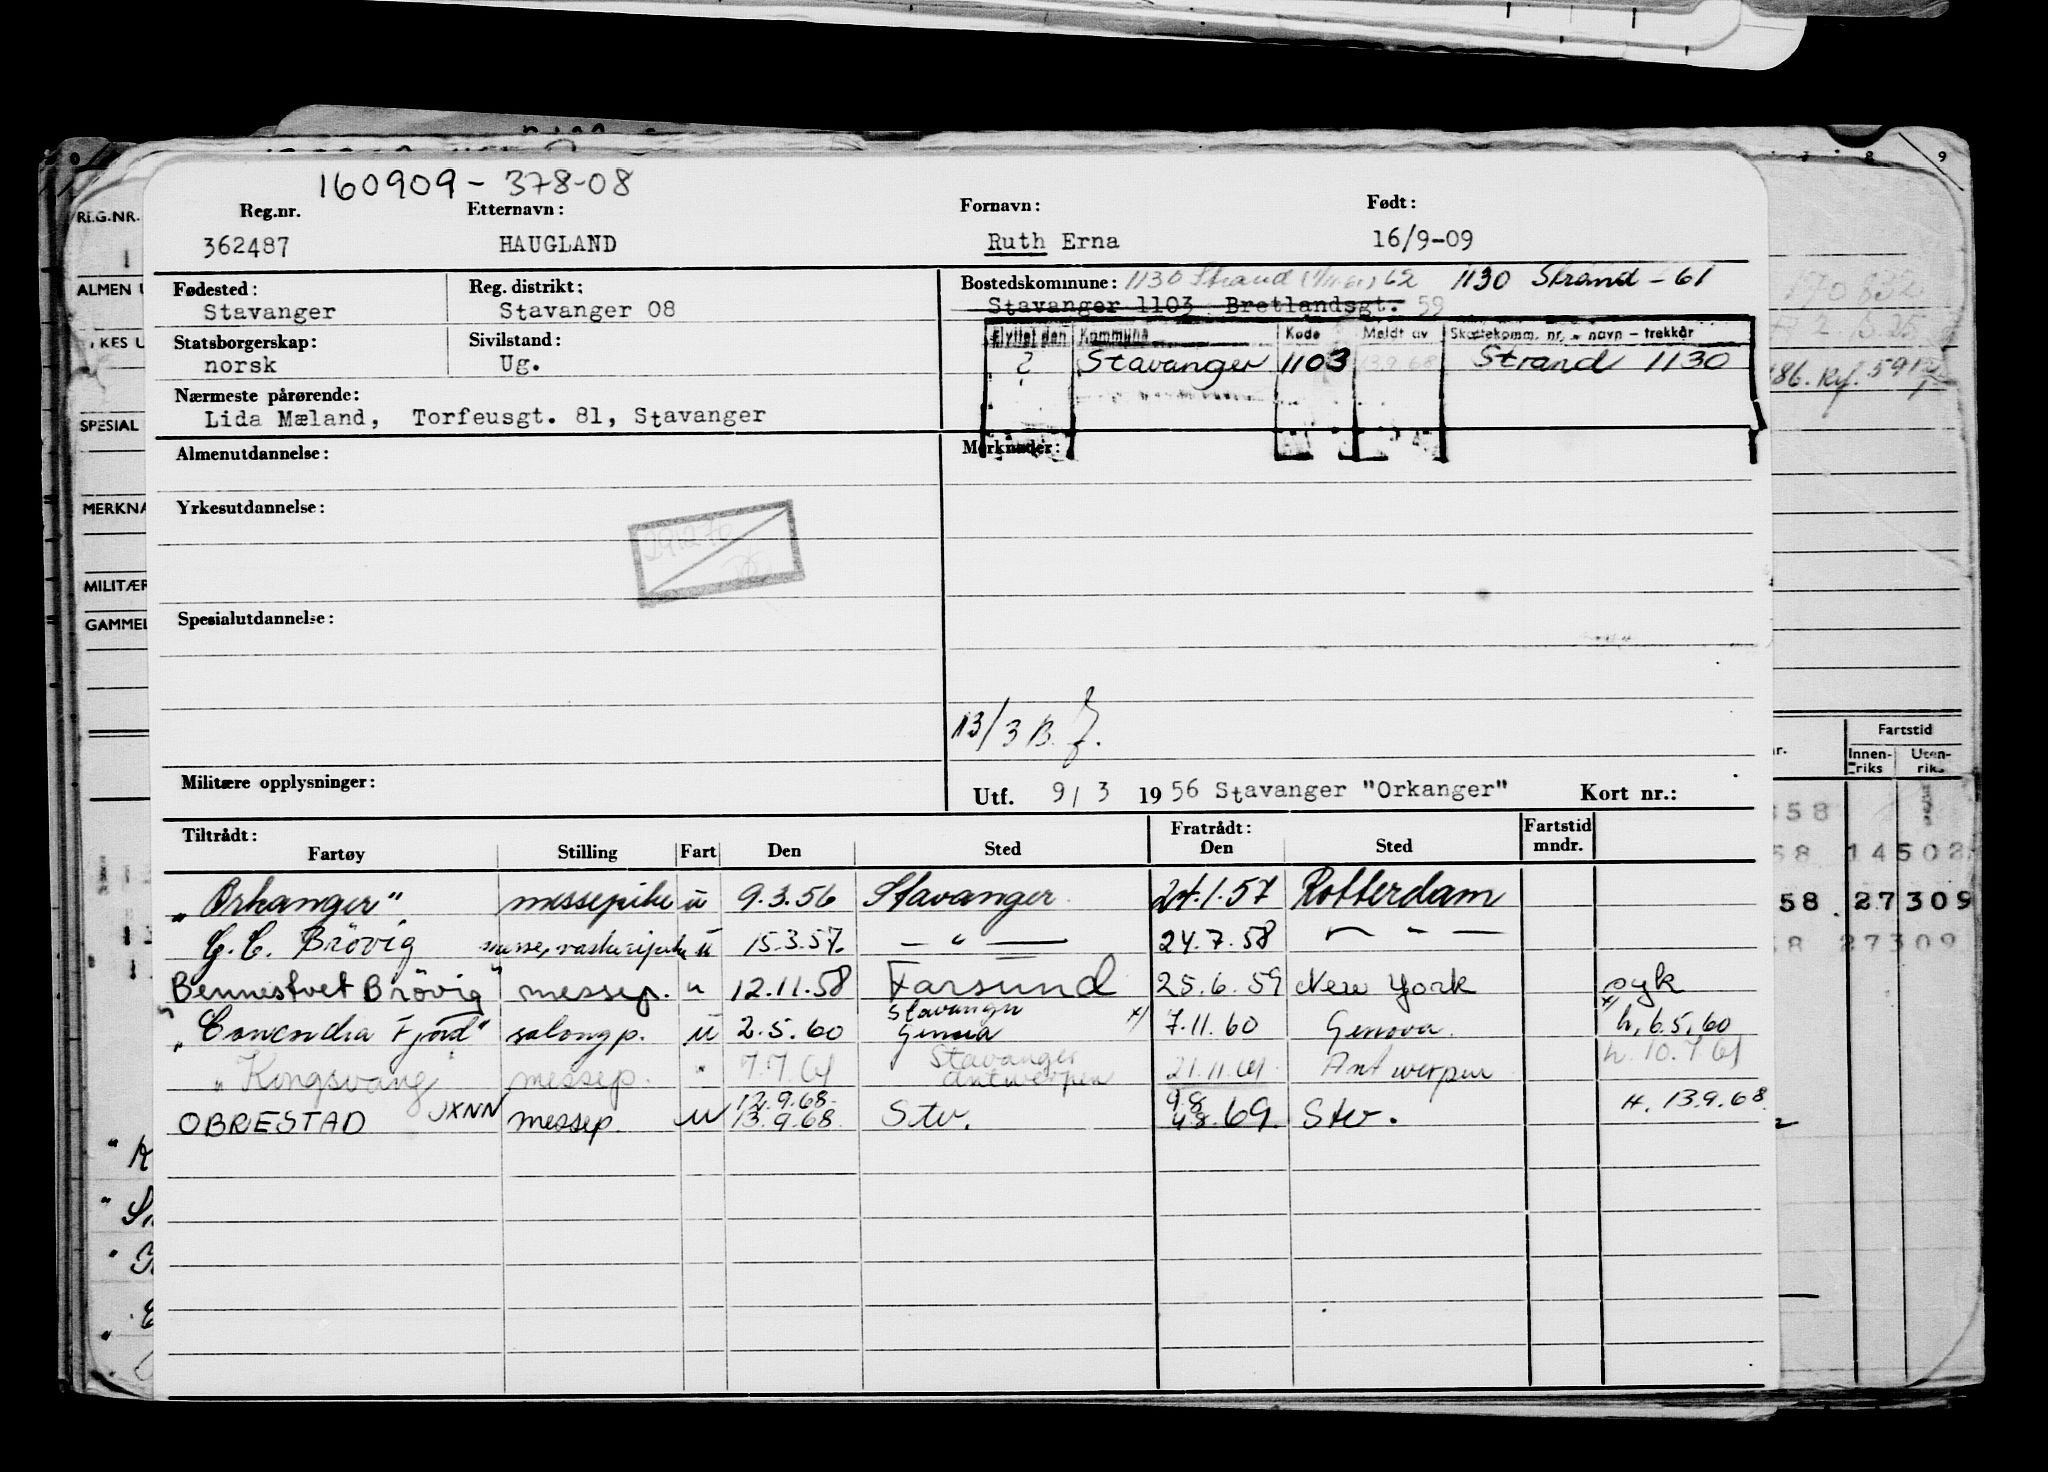 160909-378-08
Reg.nr. Etternavn: Fornavn: Født:
362487 HAUGLAND Ruth Erna 16/9-09
Fødested: Reg. distrikt: Bostedskommune: 1130 Strand 62 1130 Strand - 61
Stavanger Stavanger 08 Stavanger 1103 Bretlandsgt. 59
Statsborgerskap: Sivilstand: Flyttet den Kommune Kode Meldt av Skattekomm. nr. - navn - trekkår
norsk Ug. ? Stavanger 1103 13.9.68 Strand 1130
Nærmeste pårørende:
Lida Mæland, Torfeusgt. 81, Stavanger
Almenutdannelse: Merknader:
Yrkesutdannelse:
Spesialutdannelse:
13/3 B.
Militære opplysninger: Utf. 9/3 1956 Stavanger "Orkanger" Kort nr.:
Tiltrådt: Fratrådt: Fartstid
Fartøy Stilling Fart Den Sted Den Sted mndr.
"Orkanger" messepike u 9.3.56 Stavanger 24.1.57 Rotterdam
G. C. Brövig u 15.3.57 — " — 24.7.58 — " —
Bennestvet Brövig" messep. " 12.11.58 Farsund 25.6.59 New York syk
"Concordia Fjord" salongp. u 2.5.60 Stavanger Genova x/ 7.11.60 Genova x/ h. 6.5.60
"Kongsvang" messep. " 7.7.61 Stavanger Antwerpen 21.11.61 Antwerpen h. 10.7.61
OBRESTAD JXNN messep. u 12.9.68 13.9.68 Stv. 9.8 4.8.69 Stv. H. 13.9.68
REG.NR.
ALMEN U
YRKES U
SPESIAL
MERKNA
MILITÆR
GAMMEL
Fartstid
Innenriks Utenriks
58
58 14502
58 27309
58 27309